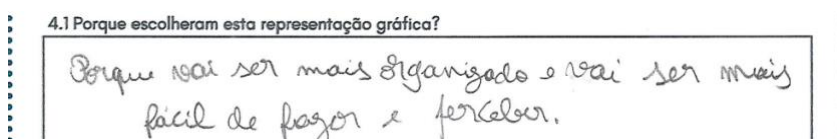 4.1 Porque escolheram esta representação gráfica?
Porque vai ser mais organizado e vai ser mais
fácil de fazer e perceber.